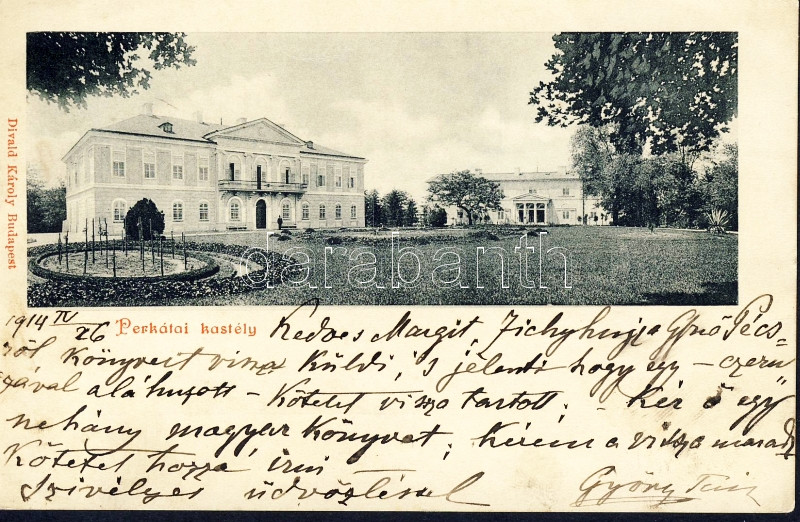 Divald Károly Budapest
darabanth
1914 IV/26 Perkátai kastély
Kedves Margit, Zichy Ernő Pécs-
ről Könyveit visza Küldi, s jelenti hogy egy – czeru
zával aláhuzott – Kötetet visza tartott. – Kér ő egy
nehány magyar Könyvet; Kérem a vissza maradt
Kötetet hozzá irni
Szivélyes üdvözléssel György